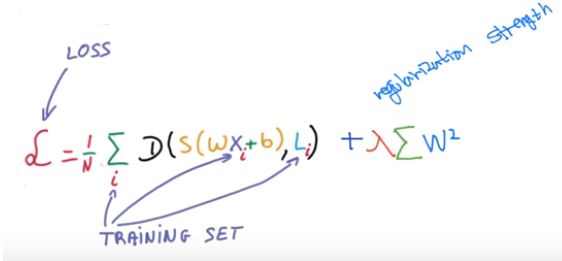 LOSS
regularization strength
ℒ = 1/N Σᵢ D(S(WXᵢ+b), Lᵢ) + λΣW²
TRAINING SET